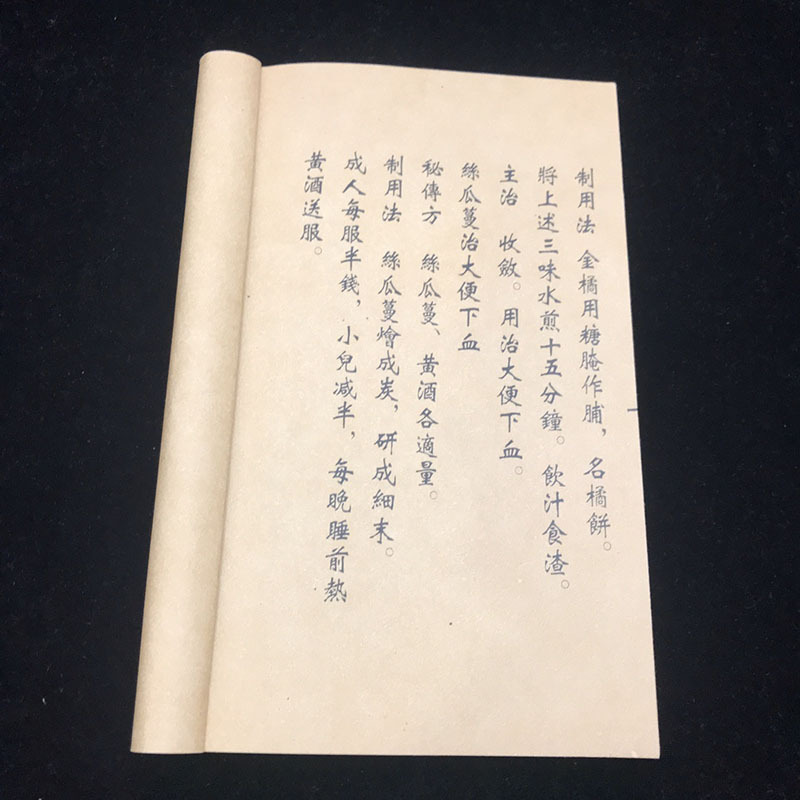 制用法　金橘用糖腌作脯，名橘餅。
將上述三味水煎十五分鐘。飲汁食渣。
主治　收斂。用治大便下血。
絲瓜蔓治大便下血
秘傳方　絲瓜蔓、黄酒各適量。
制用法　絲瓜蔓燴成炭，研成細末。
成人每服半錢，小兒减半，每晚睡前熱
黄酒送服。